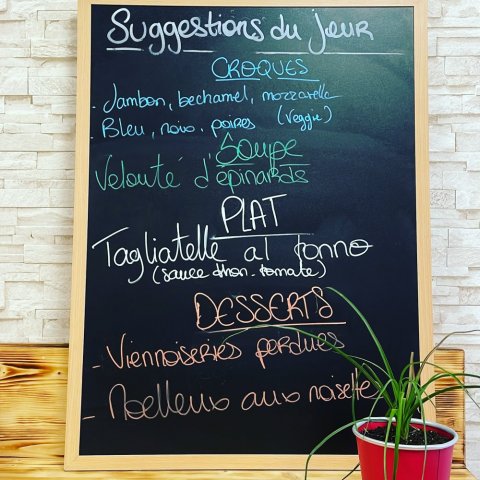 Suggestions du jour
CROQUES
- Jambon, bechamel, mozzarella
- Bleu, noix, poires (veggie)
Soupe
Velouté d'épinards
PLAT
Tagliatelle al tonno
(sauce thon-tomate)
DESSERTS
- Viennoiseries perdues
- Moelleux aux noisette